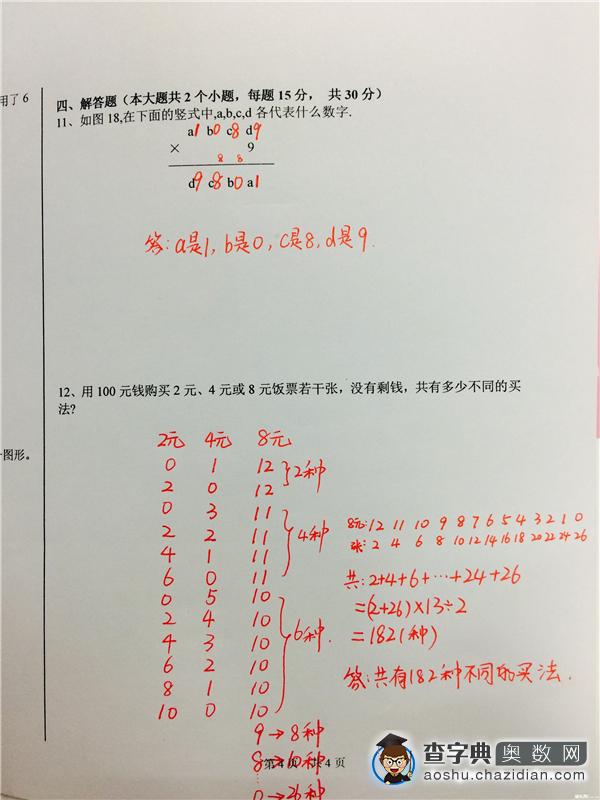 用了 6
四、解答题（本大题共 2 个小题，每题 15 分， 共 30 分）
11、如图 18,在下面的竖式中,a,b,c,d 各代表什么数字.
a1 b0 c8 d9
× 9
8 8
d9 c8 b0 a1
答:a是1, b是0, c是8, d是9.
12、用 100 元钱购买 2 元、4 元或 8 元饭票若干张，没有剩钱，共有多少不同的买
法?
个图形。
2元 4元 8元
0 1 12
2 0 12
2种
0 3 11
2 2 11
4 1 11
6 0 11
4种
0 5 10
2 4 10
4 3 10
6 2 10
8 1 10
10 0 10
6种.
9→8种
8→10种
0→26种
8元:12 11 10 9 8 7 6 5 4 3 2 1 0
张: 2 4 6 8 10 12 14 16 18 20 22 24 26
共: 2+4+6+…+24+26
=(2+26)×13÷2
=182(种)
答:共有182种不同的买法.
第 4 页 共 4 页
查字典奥数网
aoshu.chazidian.com